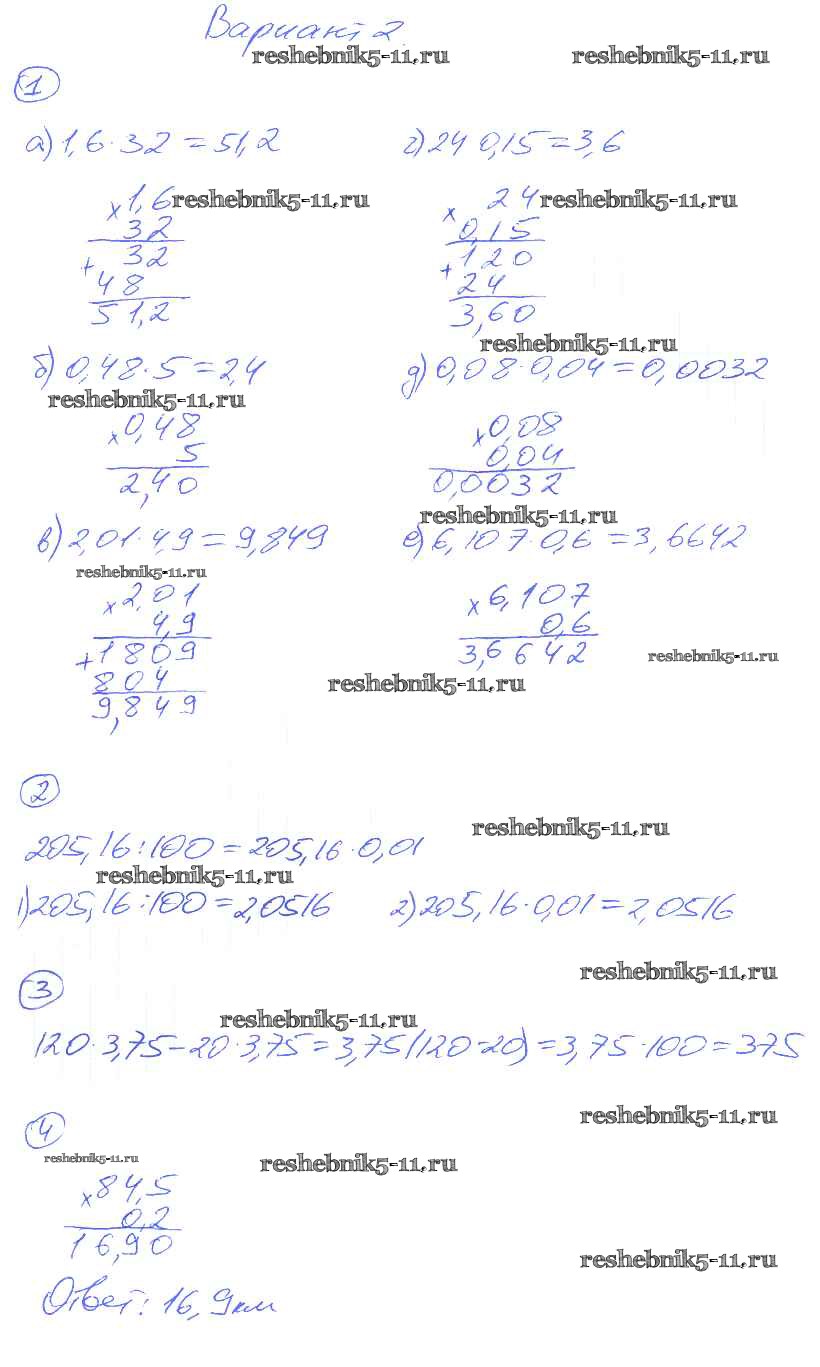 Вариант 2
reshebnik5-11.ru reshebnik5-11.ru
1
а) 1,6·32=51,2 г) 24 0,15=3,6
×1,6 reshebnik5-11.ru × 24 reshebnik5-11.ru
32 0,15
+ 32 + 120
48 24
51,2 3,60
reshebnik5-11.ru
б) 0,48·5=2,4 д) 0,08·0,04=0,0032
reshebnik5-11.ru
×0,48 ×0,08
5 0,04
2,40 0,0032
reshebnik5-11.ru
в) 2,01·4,9=9,849 е) 6,107·0,6=3,6642
reshebnik5-11.ru
×2,01 ×6,107
4,9 0,6
+1809 3,6642 reshebnik5-11.ru
804 reshebnik5-11.ru
9,849
2
reshebnik5-11.ru
205,16:100=205,16·0,01
reshebnik5-11.ru
1) 205,16:100=2,0516 2) 205,16·0,01=2,0516
reshebnik5-11.ru
3
reshebnik5-11.ru
120·3,75-20·3,75=3,75(120-20)=3,75·100=375
reshebnik5-11.ru
4
reshebnik5-11.ru reshebnik5-11.ru
×84,5
0,2
16,90
reshebnik5-11.ru
Ответ: 16,9км